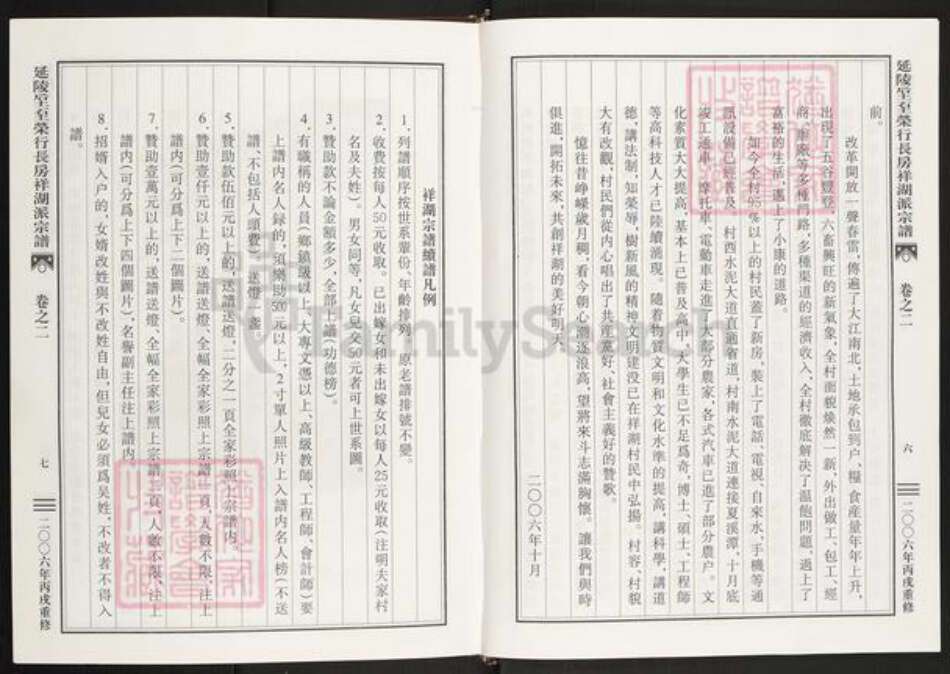 延陵堂至榮行長房祥湖派宗譜 卷之二 六 二〇〇六年丙戌重修
前。
改革開放一聲春雷,傳遍了大江南北,土地承包到户、糧食産量年年上升,
出現了五谷豐登、六畜興旺的新氣象,全村面貌焕然一新,外出做工、包工、經
商、辦廠等多種門路,多種渠道的經濟收入、全村徹底解决了温飽問題,過上了
富裕的生活,邁上了小康的道路。
如今全村95%以上的村民蓋了新房,裝上了電話、電視、自來水、手機等通
訊設備已經普及、村西水泥大道直通省道,村南水泥大道連接夏溪潭、十月底
竣工通車、摩托車、電動車走進了大部分農家,各式汽車已進了部分農户。文
化素質大大提高,基本上已普及高中,大學生已不足爲奇,博士、碩士、工程師
等高科技人才已陸續涌現。隨着物質文明和文化水準的提高,講科學,講道
德,講法制,知榮辱,樹新風的精神文明建没已在祥湖村民中弘揚。村容、村貌
大有改觀,村民們從内心唱出了共産黨好、社會主義好的贊歌。
憶往昔崢嶸歲月稠,看今朝心潮逐浪高,望將來斗志滿胸懷。讓我們與時
俱進,開拓未來,共創祥湖的美好明天。
二〇〇六年十月
祥湖宗譜續譜凡例
1、列譜順序按世系輩份、年齡排列。原老譜排號不變。
2、收費按每人50元收取。已出嫁女和未出嫁女以每人25元收取(注明夫家村
名及夫姓)。男女同等,凡女兒交50元者可上世系圖。
3、贊助款不論金額多少,全部上譜(功德榜)。
4、有職稱的人員(鄉鎮級以上、大專文憑以上、高級教師、工程師、會計師)要
上譜内名人録的,須樂助500元以上,2寸單人照片上入譜内名人榜(不送
譜、不包括人頭費)、送燈一盞。
5、贊助款伍佰元以上的,送譜送燈,二分之一頁全家彩照上宗譜内。
6、贊助壹仟元以上的,送譜送燈、全幅全家彩照上宗譜一頁,人數不限、注上
譜内(可分爲上下二個圖片)。
7、贊助壹萬元以上的,送譜送燈、全幅全家彩照上宗譜二頁,人數不限、注上
譜内(可分爲上下四個圖片),名譽副主任注上譜内。
8、招婿入户的,女婿改姓與不改姓自由,但兒女必須爲吴姓,不改者不得入
譜。
延陵堂至榮行長房祥湖派宗譜 卷之二 七 二〇〇六年丙戌重修
FamilySearch